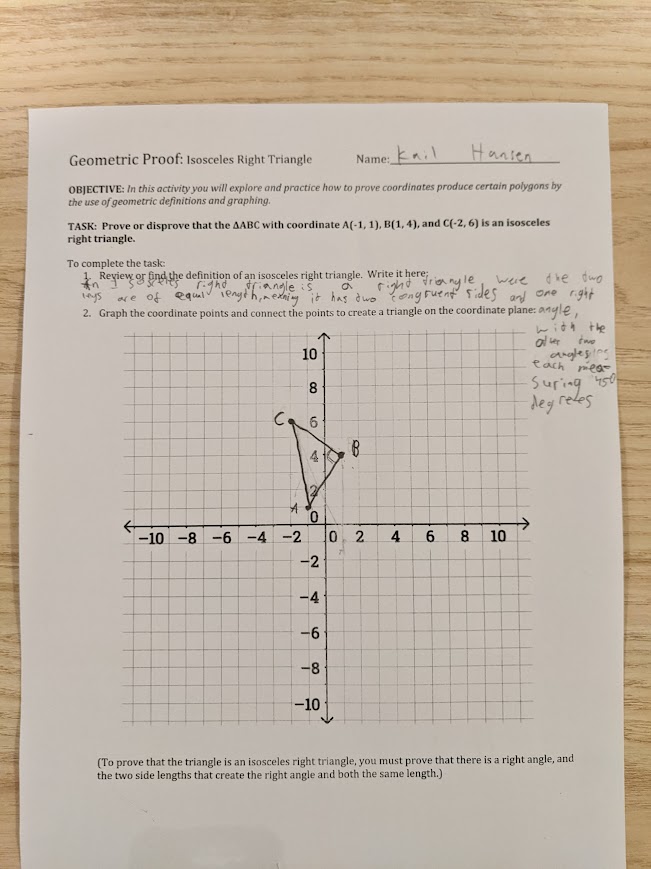 Geometric Proof: Isosceles Right Triangle Name: Kail Hansen
OBJECTIVE: In this activity you will explore and practice how to prove coordinates produce certain polygons by
the use of geometric definitions and graphing.
TASK: Prove or disprove that the ΔABC with coordinate A(-1, 1), B(1, 4), and C(-2, 6) is an isosceles
right triangle.
To complete the task:
1. Review or find the definition of an isosceles right triangle. Write it here:
An Isosceles right triangle is a right triangle were the two
legs are of equal length, meaning it has two congruent sides and one right
2. Graph the coordinate points and connect the points to create a triangle on the coordinate plane:
angle,
with the
other two
angles
each mea-
suring 450
degrees
10
8
C 6
4 B
2
A 0
-10 -8 -6 -4 -2 0 2 4 6 8 10
-2
-4
-6
-8
-10
(To prove that the triangle is an isosceles right triangle, you must prove that there is a right angle, and
the two side lengths that create the right angle and both the same length.)